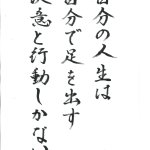 自分の人生は
自分で足を出す
決意と行動しかない